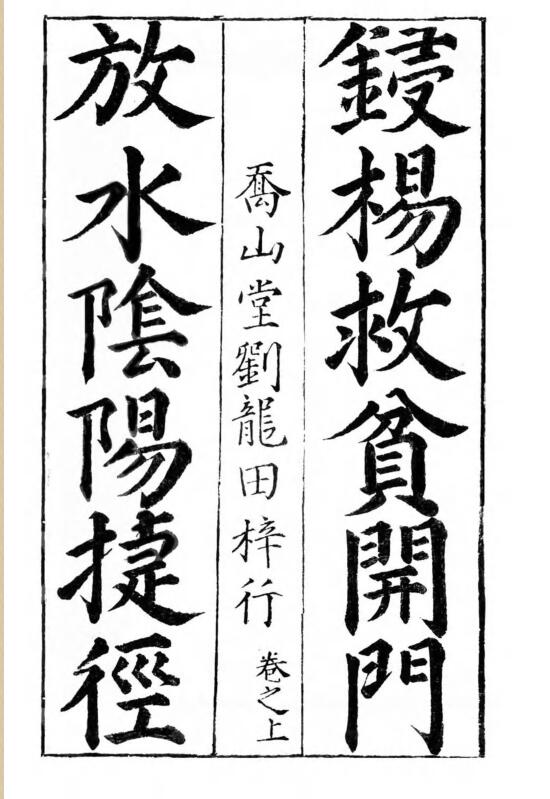 鋟楊救貧開門
喬山堂劉龍田梓行 卷之上
放水陰陽捷徑